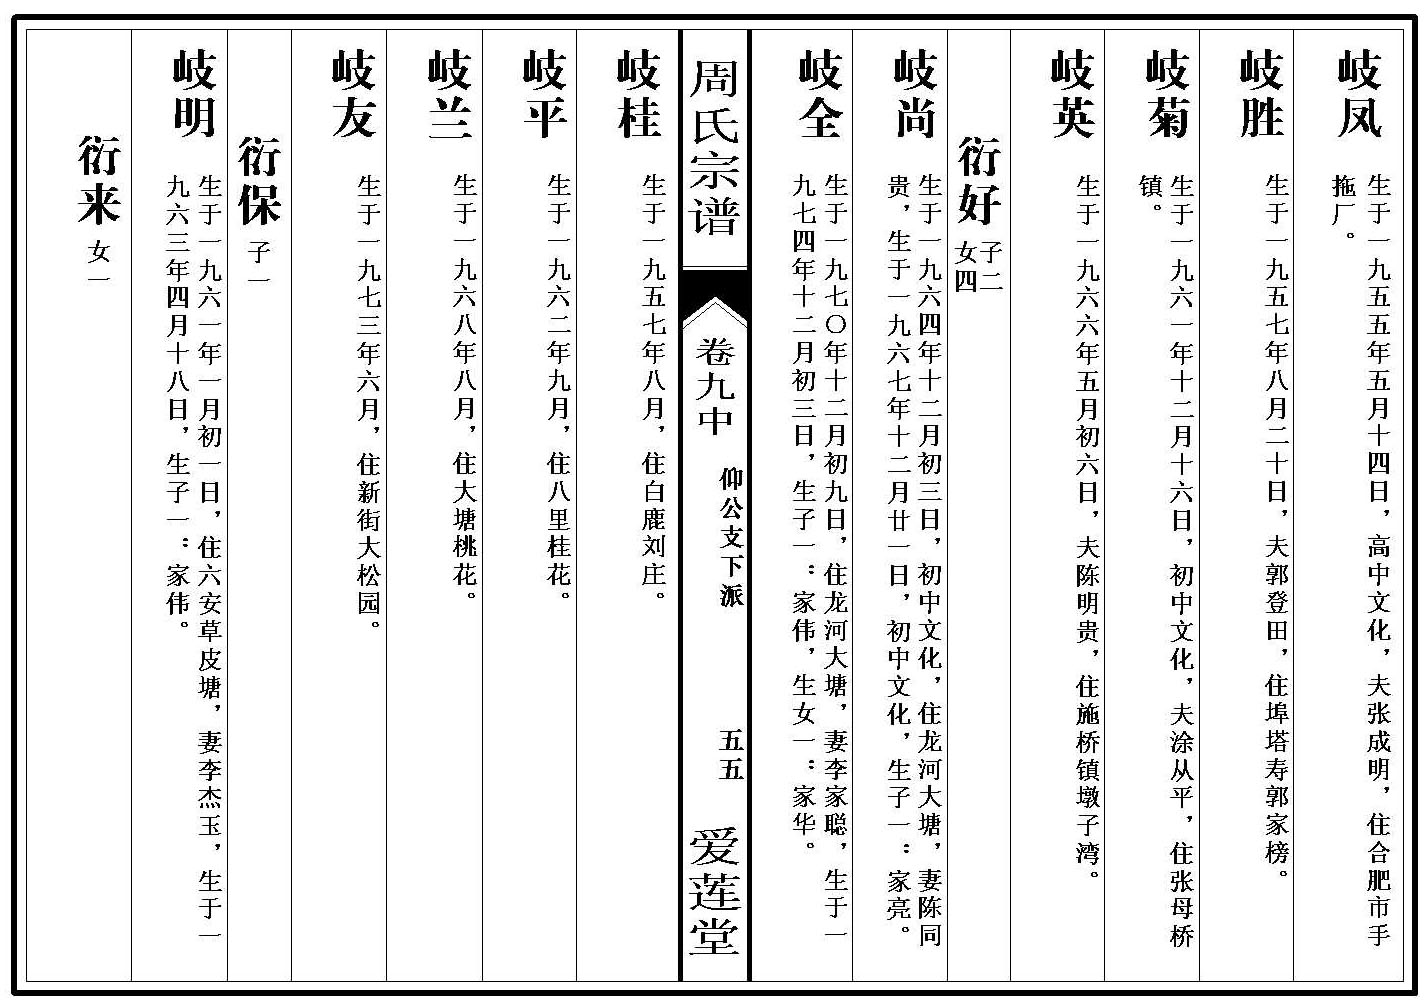 岐凤
生于一九五五年五月十四日，高中文化，夫张成明，住合肥市手
拖厂。
岐胜
生于一九五七年八月二十日，夫郭登田，住埠塔寿郭家榜。
岐菊
生于一九六一年十二月十六日，初中文化，夫涂从平，住张母桥
镇。
岐英
生于一九六六年五月初六日，夫陈明贵，住施桥镇墩子湾。
衍好
子二
女四
岐尚
生于一九六四年十二月初三日，初中文化，住龙河大塘，妻陈同
贵，生于一九六七年十二月廿一日，初中文化，生子一：家亮。
岐全
生于一九七〇年十二月初九日，住龙河大塘，妻李家聪，生于一
九七四年十二月初三日，生子一：家伟，生女一：家华。
周氏宗谱
卷九中
仰公支下派
五五
爱莲堂
岐桂
生于一九五七年八月，住白鹿刘庄。
岐平
生于一九六二年九月，住八里桂花。
岐兰
生于一九六八年八月，住大塘桃花。
岐友
生于一九七三年六月，住新街大松园。
衍保
子一
岐明
生于一九六一年一月初一日，住六安草皮塘，妻李杰玉，生于一
九六三年四月十八日，生子一：家伟。
衍来
女一